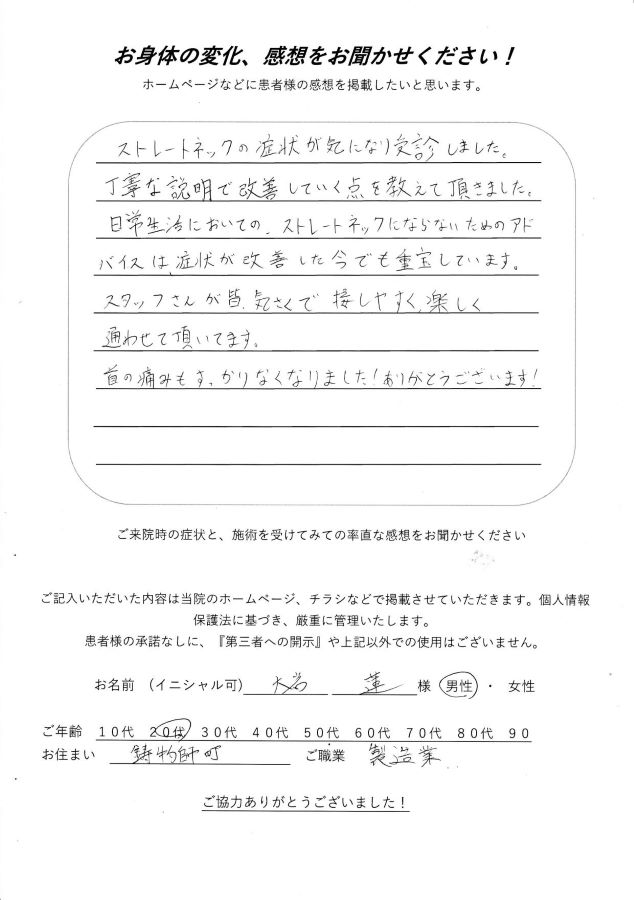 お身体の変化、感想をお聞かせください！
ホームページなどに患者様の感想を掲載したいと思います。
ストレートネックの症状が気になり受診しました。
丁寧な説明で改善していく点を教えて頂きました。
日常生活においての、ストレートネックにならないためのアド
バイスは、症状が改善した今でも重宝しています。
スタッフさんが皆、気さくで 接しやすく、楽しく
通わせて頂いてます。
首の痛みもすっかりなくなりました！ありがとうございます！
ご来院時の症状と、施術を受けてみての率直な感想をお聞かせください
ご記入いただいた内容は当院のホームページ、チラシなどで掲載させていただきます。個人情報
保護法に基づき、厳重に管理いたします。
患者様の承諾なしに、『第三者への開示』や上記以外での使用はございません。
お名前 （イニシャル可） 蓮 様 男性 ・ 女性
ご年齢 １０代 ２０代 ３０代 ４０代 ５０代 ６０代 ７０代 ８０代 ９０
お住まい 鋳物師町 ご職業 製造業
ご協力ありがとうございました！